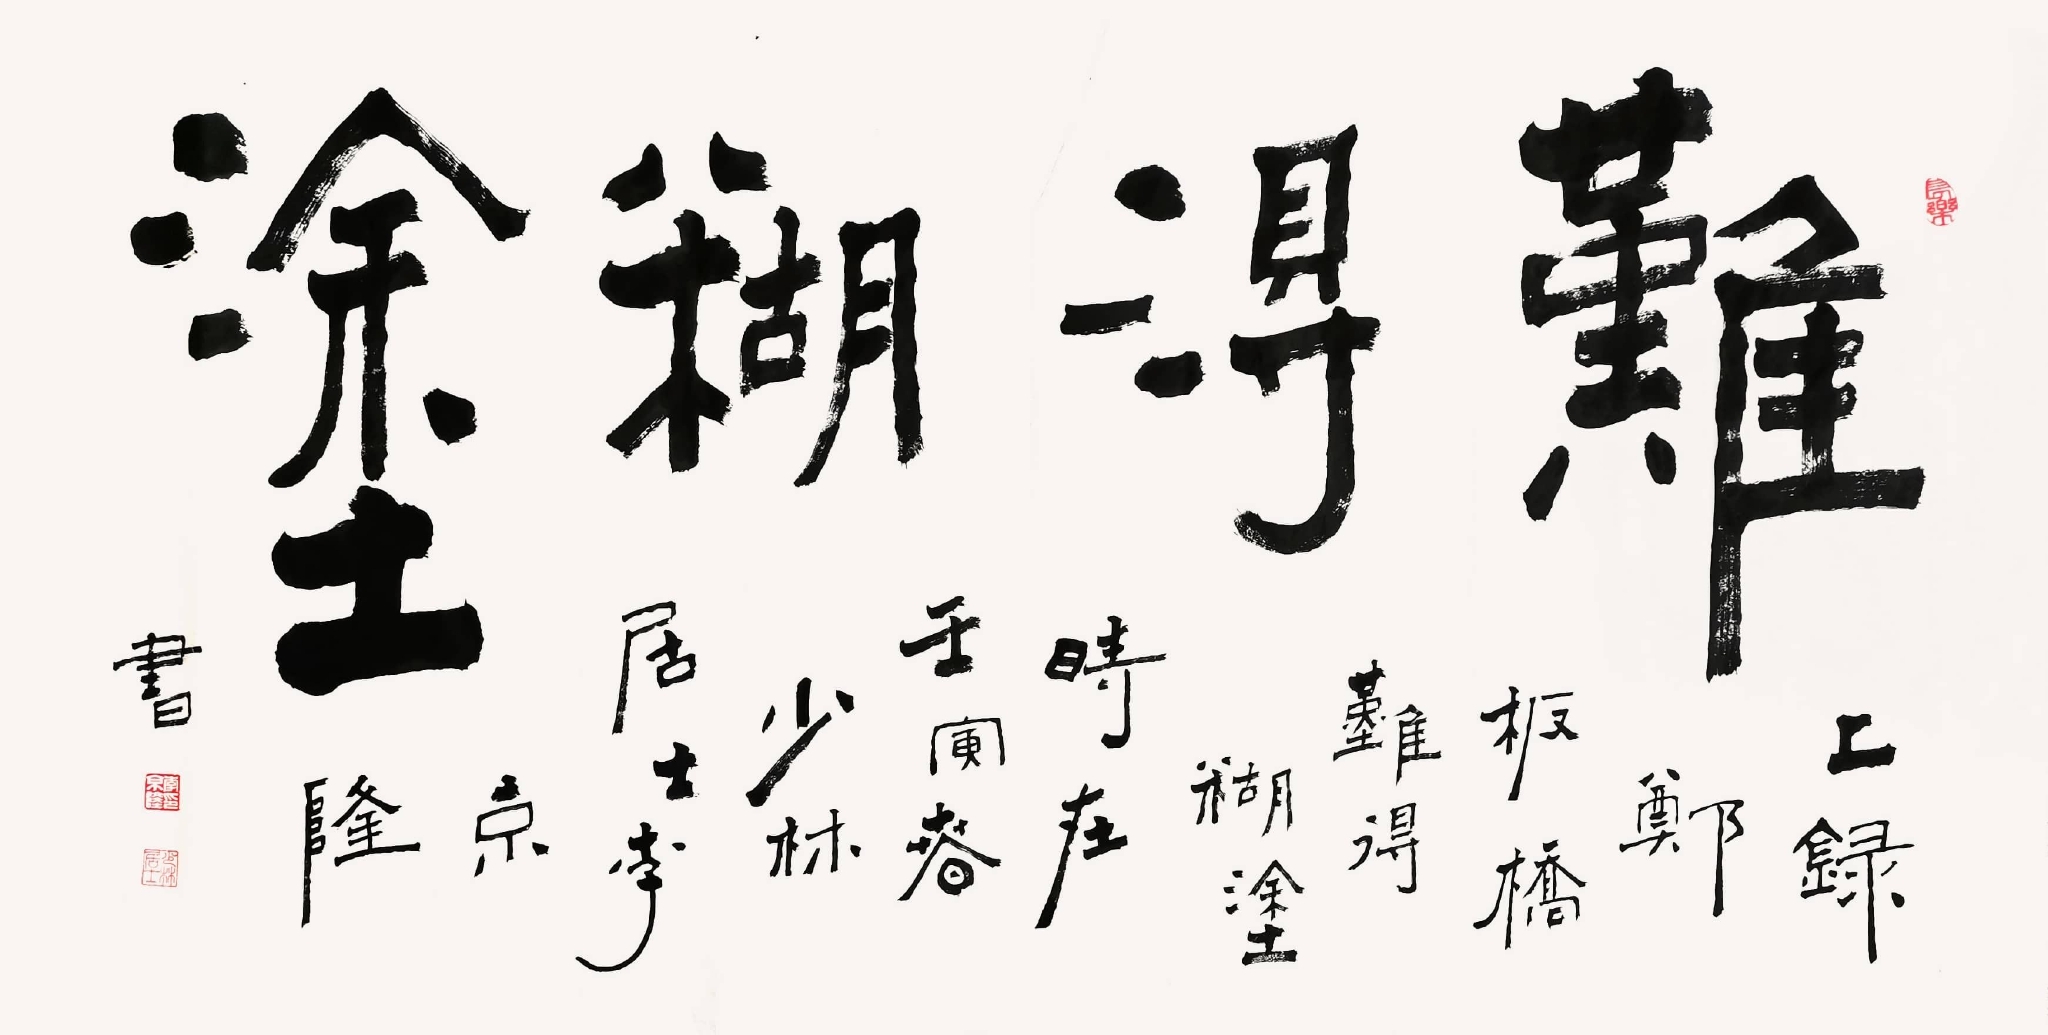 難得糊塗
上録
鄭
板橋
難得
糊塗
時在
壬寅春
少林
居士李
京
隆
書